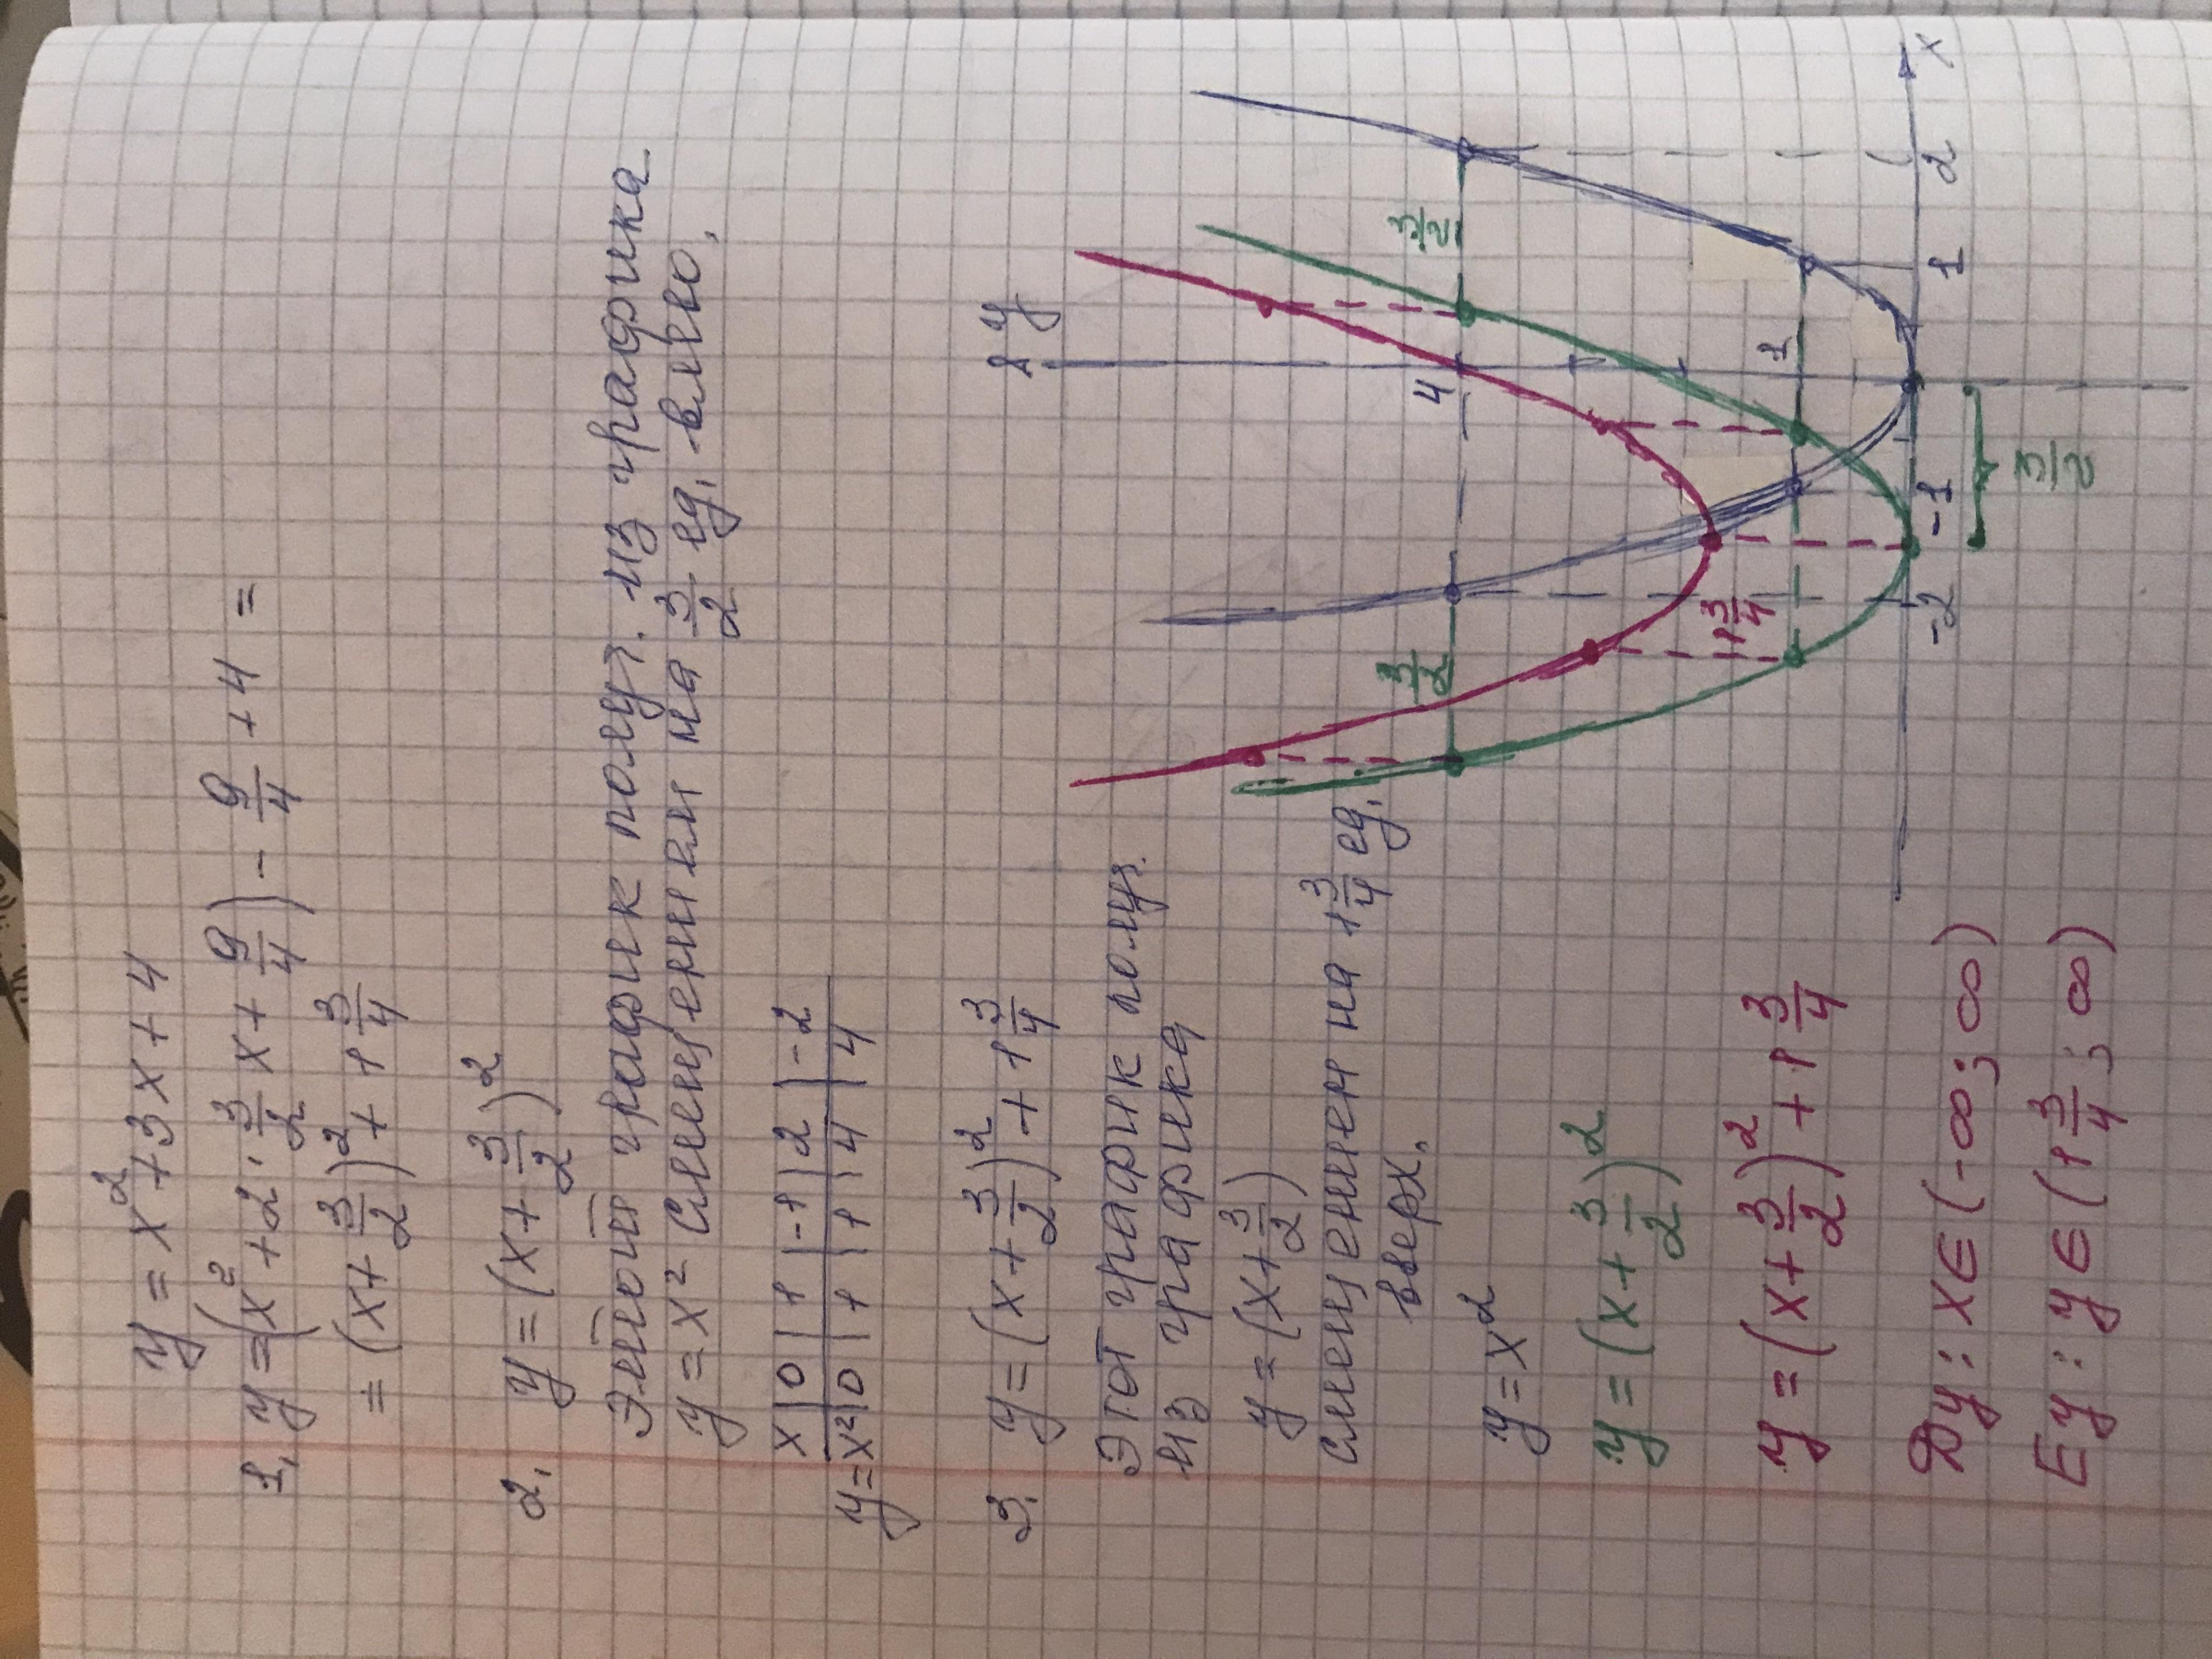 y = x² + 3x + 4
1. y = (x² + 2 · 3/2 x + 9/4) - 9/4 + 4 =
= (x + 3/2)² + 1 3/4
2. y = (x + 3/2)²
график получ. из графика
y = x² смещением на 3/2 ед. влево.
x | 0 | 1 | -1 | 2 | -2
y=x² | 0 | 1 | 1 | 4 | 4
3. y = (x + 3/2)² + 1 3/4
Этот график получ.
из графика
y = (x + 3/2)
смещением на 1 3/4 ед.
вверх.
y = x²
y = (x + 3/2)²
y = (x + 3/2)² + 1 3/4
Dy: x ∈ (-∞; ∞)
Ey: y ∈ (1 3/4; ∞)
y
3/2
4
3/2
1
1 3/4
-2
-1
1
2
x
3/2